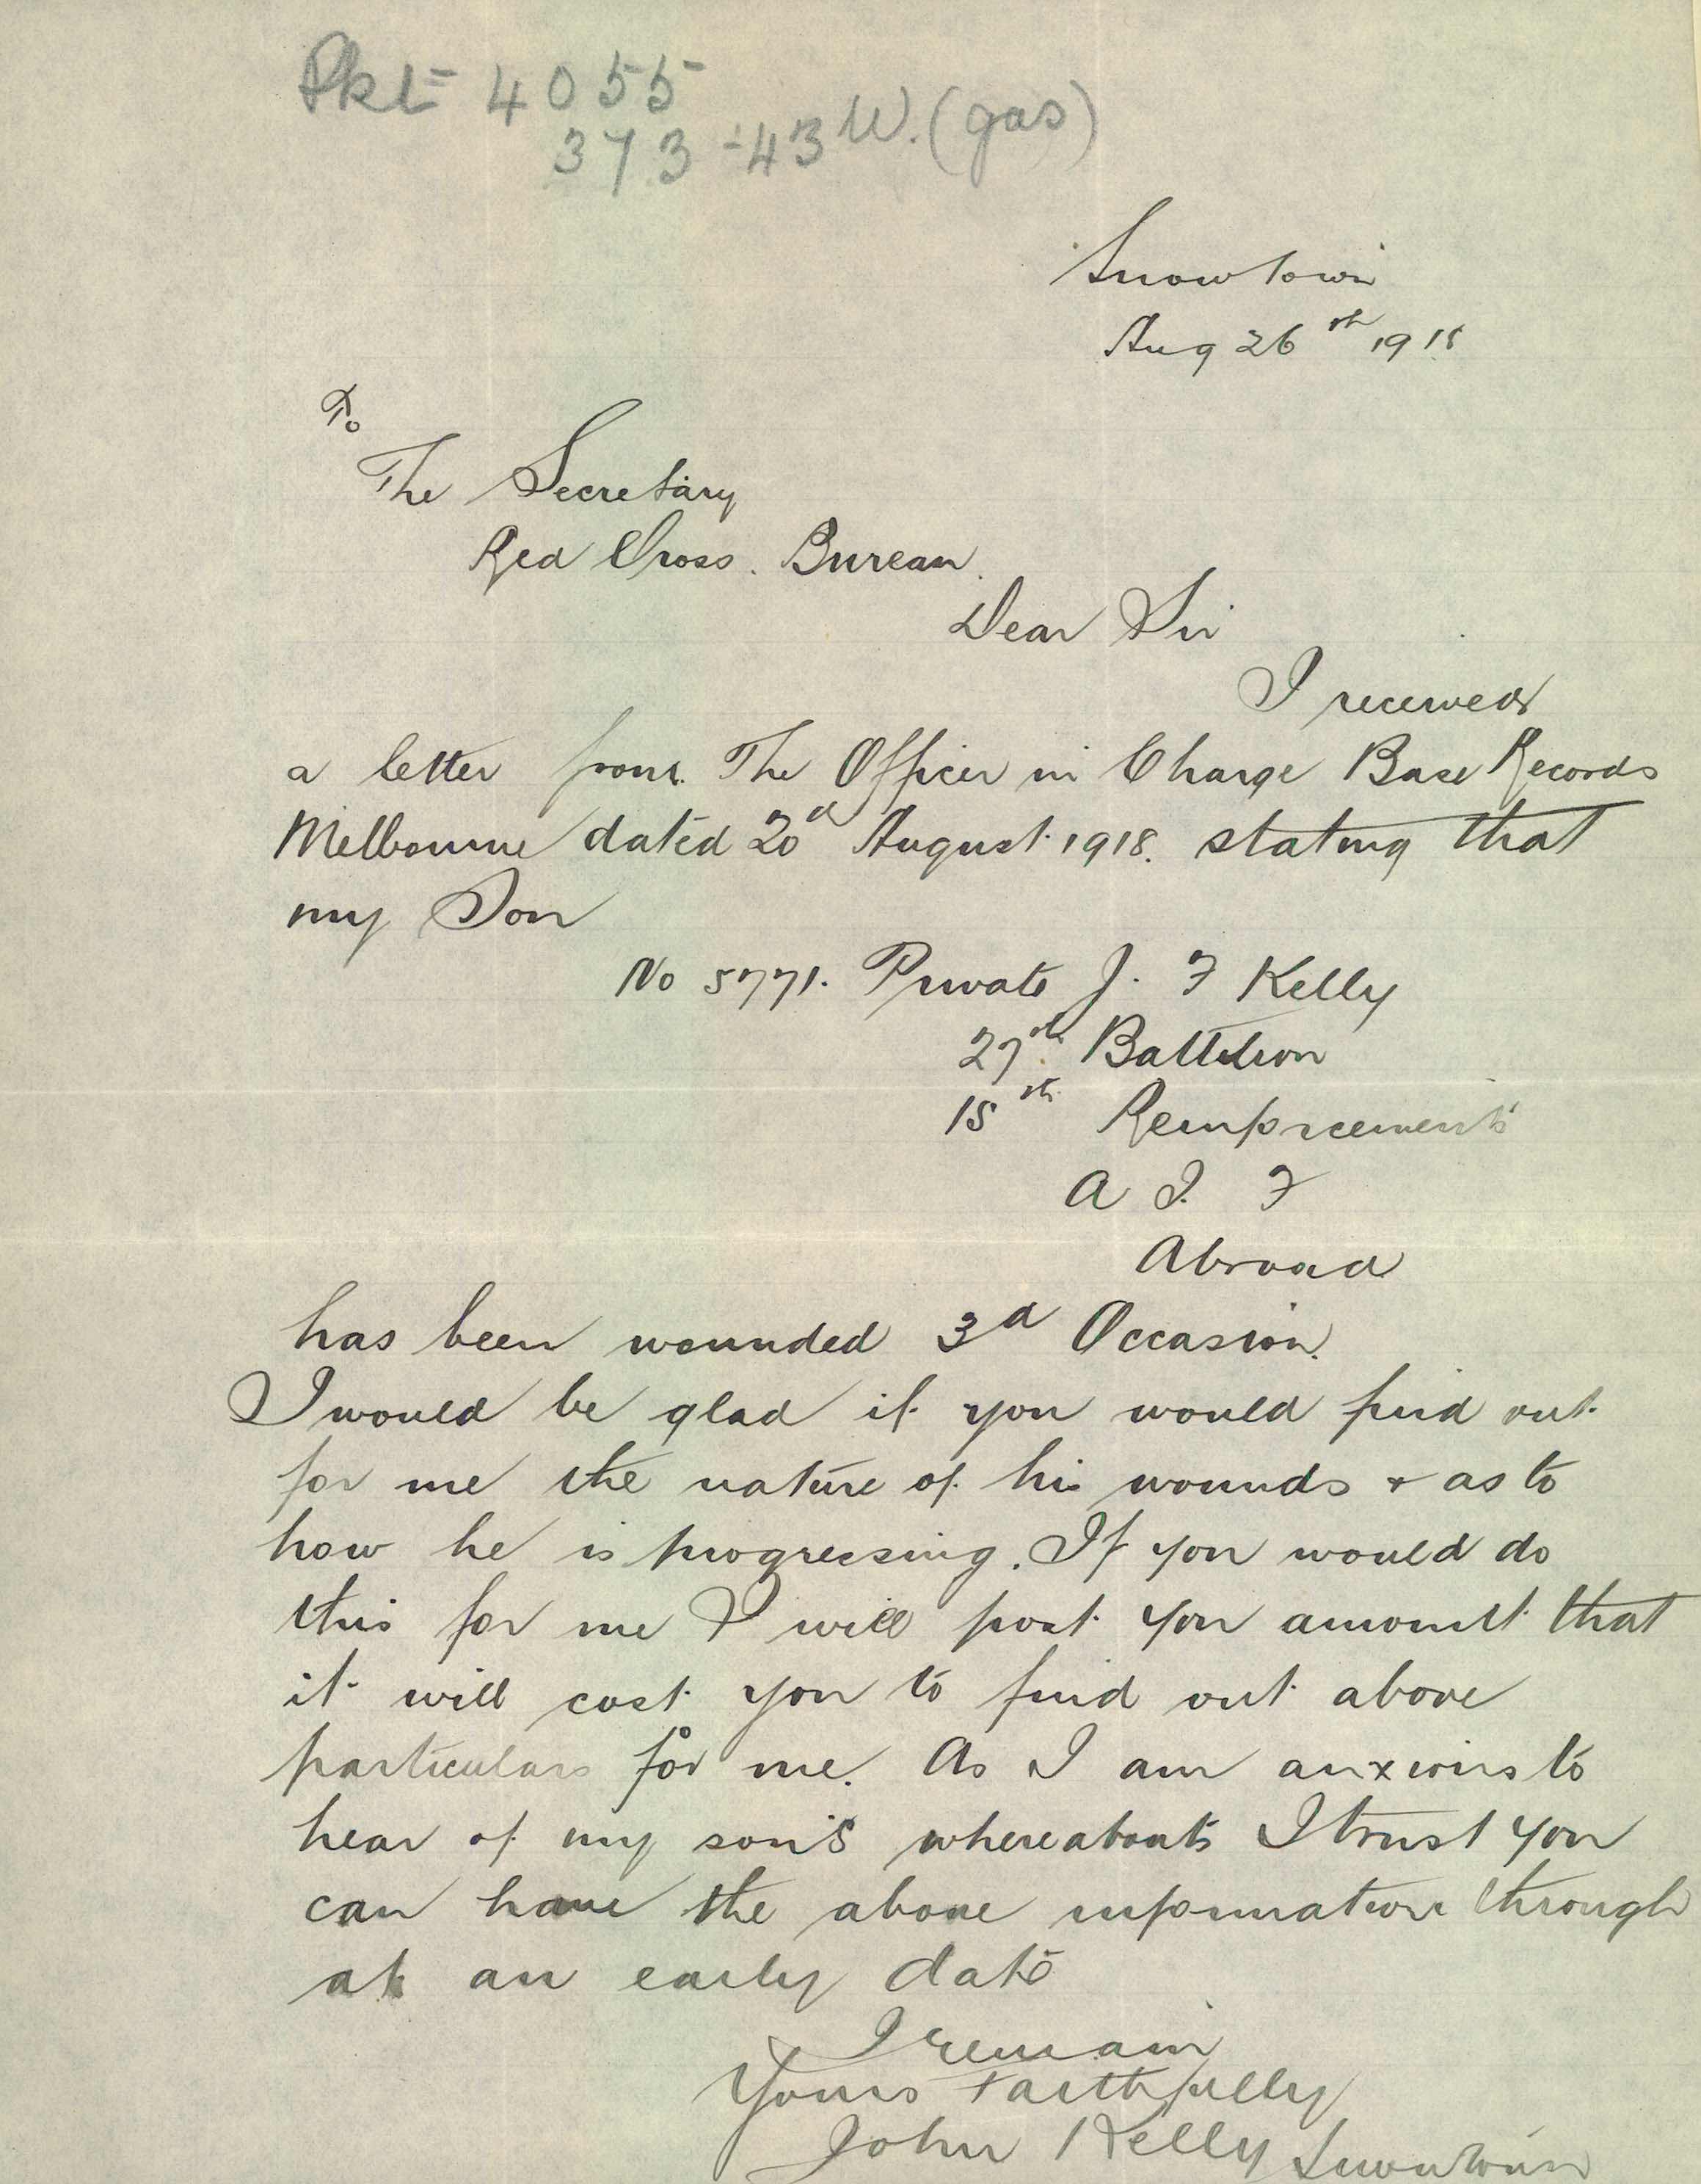 Pkt 4055
373-43 W. (gas)
Snowtown
Aug 26th 1918
To
The Secretary
Red Cross. Bureau.
Dear Sir
I received
a letter from The Officer in Charge Base Records
Melbourne dated 20d August 1918. stating that
my Son
No 5771. Private J. F Kelly
27th Battelion
15th Reinforcements
A I. F
Abroad
has been wounded 3d Occasion.
I would be glad if you would find out
for me the nature of his wounds & as to
how he is progressing. If you would do
this for me I will post you amount that
it will cost you to find out above
particulars for me. As I am anxious to
hear of my son's whereabouts I trust you
can have the above information through
at an early date
I remain
Yours Faithfully
John Kelly Snowtown